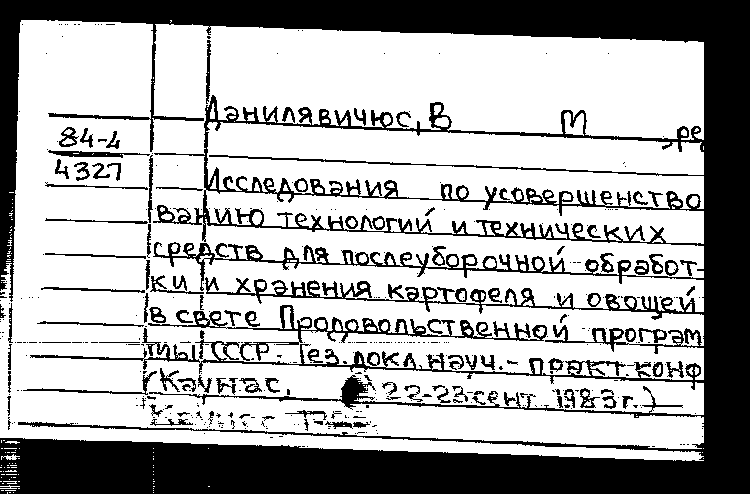 Данилявичюс, В М , ре
84-4
4327
Исследования по усовершенство
ванию технологий и технических
средств для послеуборочной обработ-
ки и хранения картофеля и овощей
в свете Продовольственной програм
мы СССР. Тез. докл. науч. - практ. конф
(Каунас, 22-23 сент. 1983 г.)
Каунас